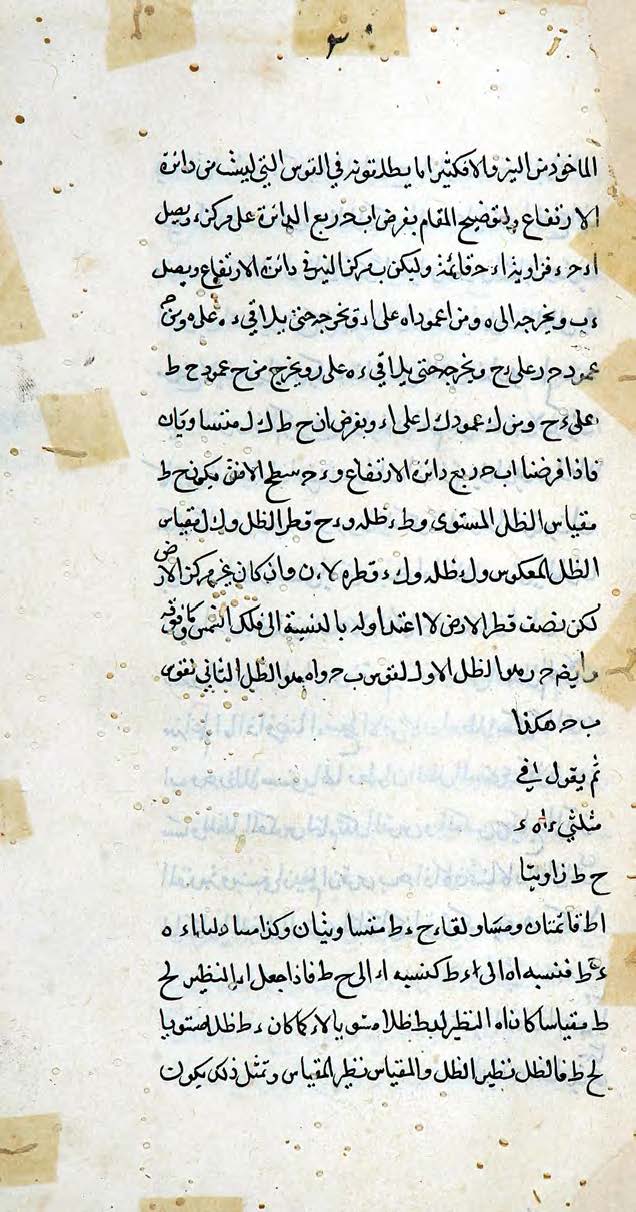 ٣
الماخوذ من النير والا فكثيرا ما يطلقونه في القوس التي ليست من دائرة
الارتفاع ولتوضيح المقام بفرض اب ح ربع الدائرة على مركز ء ويصل
اء ح ء فزاوية اء ح قائمة وليكن ب مركز النير في دائرة الارتفاع ويصل
ء ب ويخرجه الى ه ومن ا عمود اه على اء ويخرجه حتى يلاقي ء ه على ه ومن ح
عمود ح ر على ء ح ويخرجه حتى يلاقي ء ه على ر ويخرج من ح عمود ح ط
على ء ح ومن ك عمود ك ل على اء وبفرض ان ح ط ك ل متساويان
فاذا فرضنا اب ح ربع دائرة الارتفاع و ء ح سطح الافق يكون ح ط
مقياس الظل المستوى و ط ء ظله و ء ح قطر الظل و ك ل مقياس
الظل المعكوس و ل ء ظله و ك ء قطره لان ء وان كان غير مركز الارض
لكن نصف قطر الارض لا اعتداد له بالنسبة الى فلك الشمس فما فوقه
وايضا ح ر هو الظل الاول لقوس ب ح و اه هو الظل الثاني لقوس
ب ح هكذا
ثم يقول في
مثلثي ء اه ء
ح ط زاويتا
ا ط قائمتان و ء متساو لقاء ح ء ط متساويتان وكذا
ء ط فنسبة اه الى اء ط كنسبة اء الى ح ط فاذا جعل اء النظير لح
ط مقياسا كان اه النظير ل ء ط ظلا مستويا لاء كما كان ء ط ظلا مستويا
لح ط فالظل نظير الظل والمقياس نظير المقياس وبمثل ذلك يكون